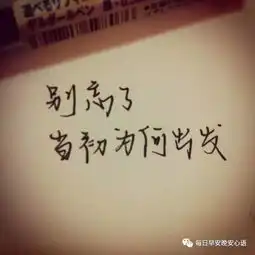 别忘了
当初为何出发
每日早安晚安心语